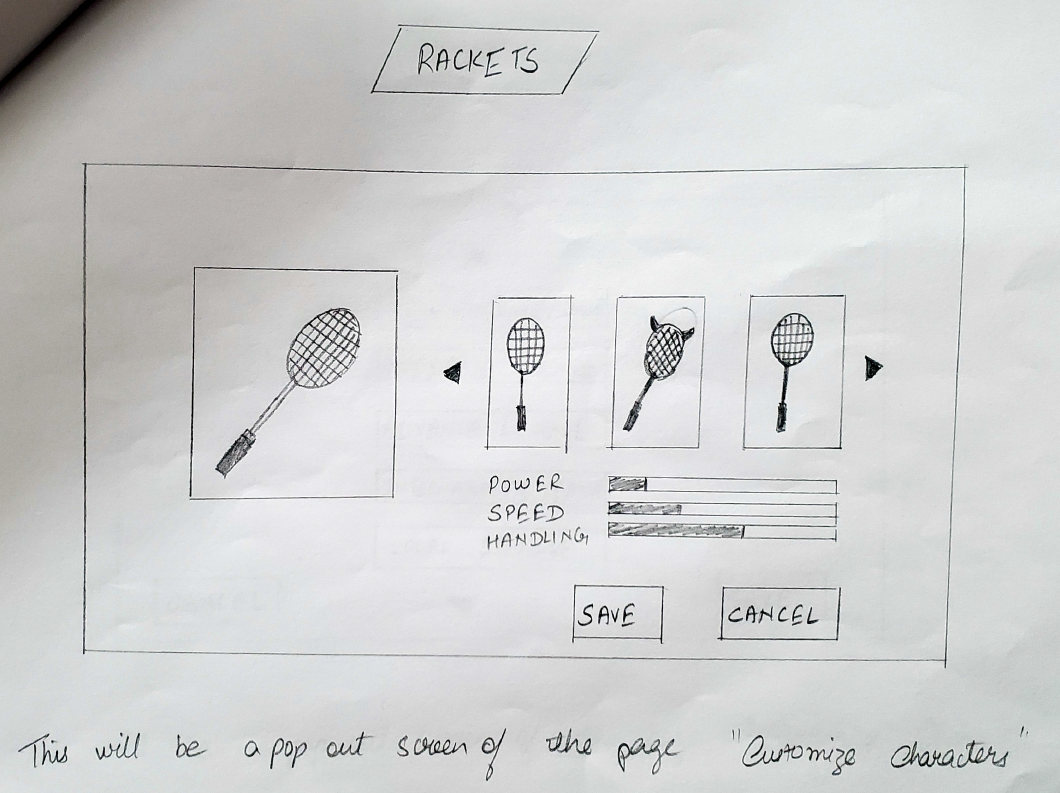 RACKETS
POWER
SPEED
HANDLING
SAVE
CANCEL
This will be a pop out screen of the page "Customize Characters"